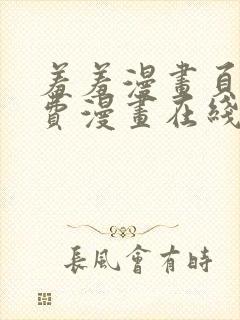 羞羞漫畫頁
費漫畫在綫
長風會有時